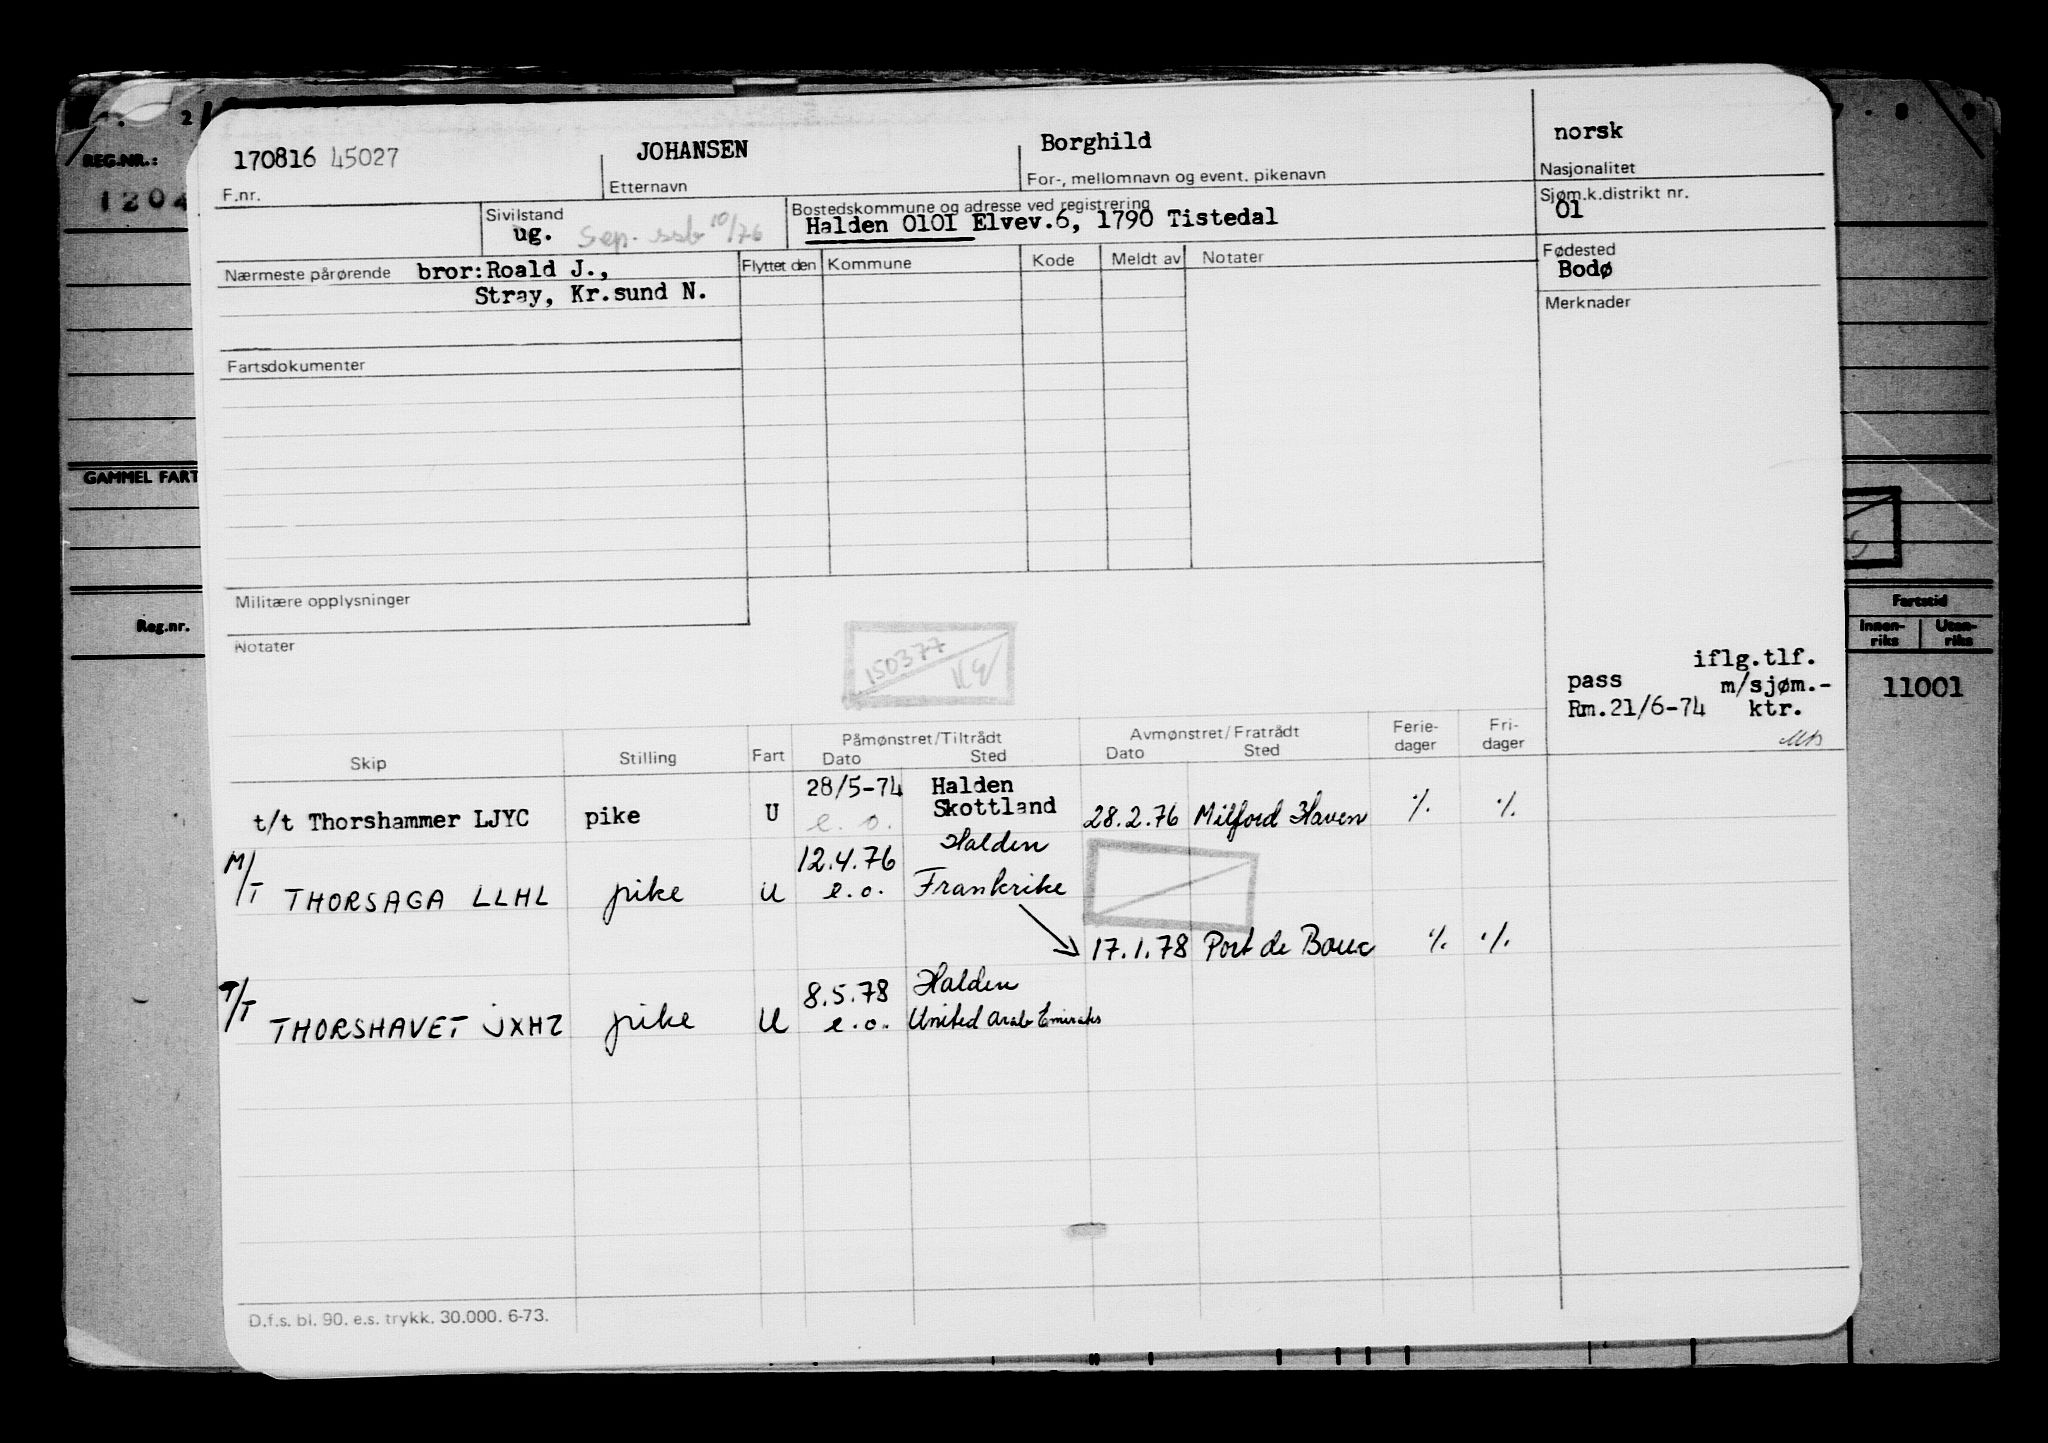 170816 45027
F.nr.
JOHANSEN
Etternavn
Borghild
For-, mellomnavn og event. pikenavn
norsk
Nasjonalitet
Sivilstand
ug. Sep. ssb 10/76
Bostedskommune og adresse ved registrering
Halden 0101 Elvev.6, 1790 Tistedal
Sjøm.k.distrikt nr.
01
Nærmeste pårørende bror:Roald J.,
Stray, Kr.sund N.
Flyttet den Kommune Kode Meldt av Notater
Fødested
Bodø
Merknader
Fartsdokumenter
Militære opplysninger
Notater
150377
iflg.tlf.
pass m/sjøm.-
Rm.21/6-74 ktr.
Skip Stilling Fart
Påmønstret/Tiltrådt
Dato Sted
Avmønstret/Fratrådt
Dato Sted
Ferie-
dager
Fri-
dager
28/5-74 Halden
t/t Thorshammer LJYC pike U e.o. Skottland 28.2.76 Milford Haven ./. ./.
12.4.76 Halden
M/T THORSAGA LLHL pike U e.o. Frankrike
17.1.78 Port de Bouc ./. ./.
8.5.78 Halden
T/T THORSHAVET JXHZ pike U e.o. United Arab Emirates
D.f.s. bl. 90. e.s. trykk. 30.000. 6-73.
REG.NR.:
1204
GAMMEL FART
Reg.nr.
2
7 · 8 · 9
Fartstid
Innen-
riks
Uten-
riks
11001